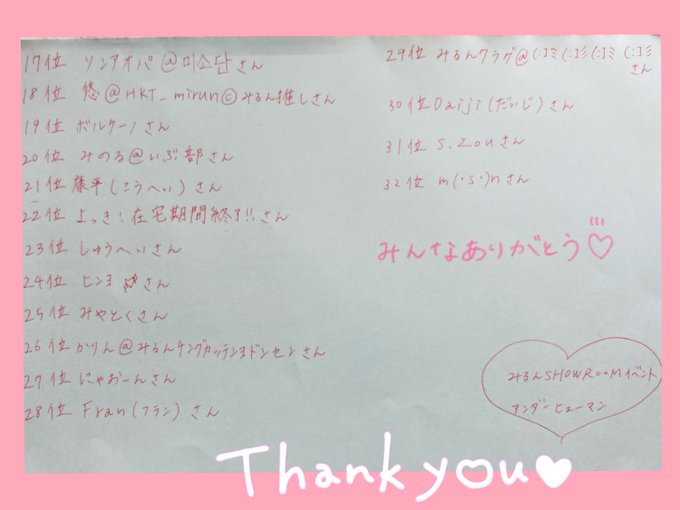 17位 ソンアオパ@미소단さん
18位 悠@HKT_mirun©みるん推しさん
19位 ボルケーノさん
20位 みのる@いぶ部さん
21位 藤平(こうへい)さん
22位 よっき!在宅期間終了!!さん
23位 しゅうへいさん
24位 ヒンヨ さん
25位 みやとくさん
26位 かりん@みるんチングカッテンヨドンセンさん
27位 にゃおーんさん
28位 Fran(フラン)さん
29位 みるんクラゲ@(:]ミ(:]彡(:]ミ(:]彡
さん
30位 Daiji(だいじ)さん
31位 S.Zouさん
32位 m(・s・)nさん
みんなありがとう♡
みるんSHOWROOMイベント
アンダーヒューマン
Thank you♥